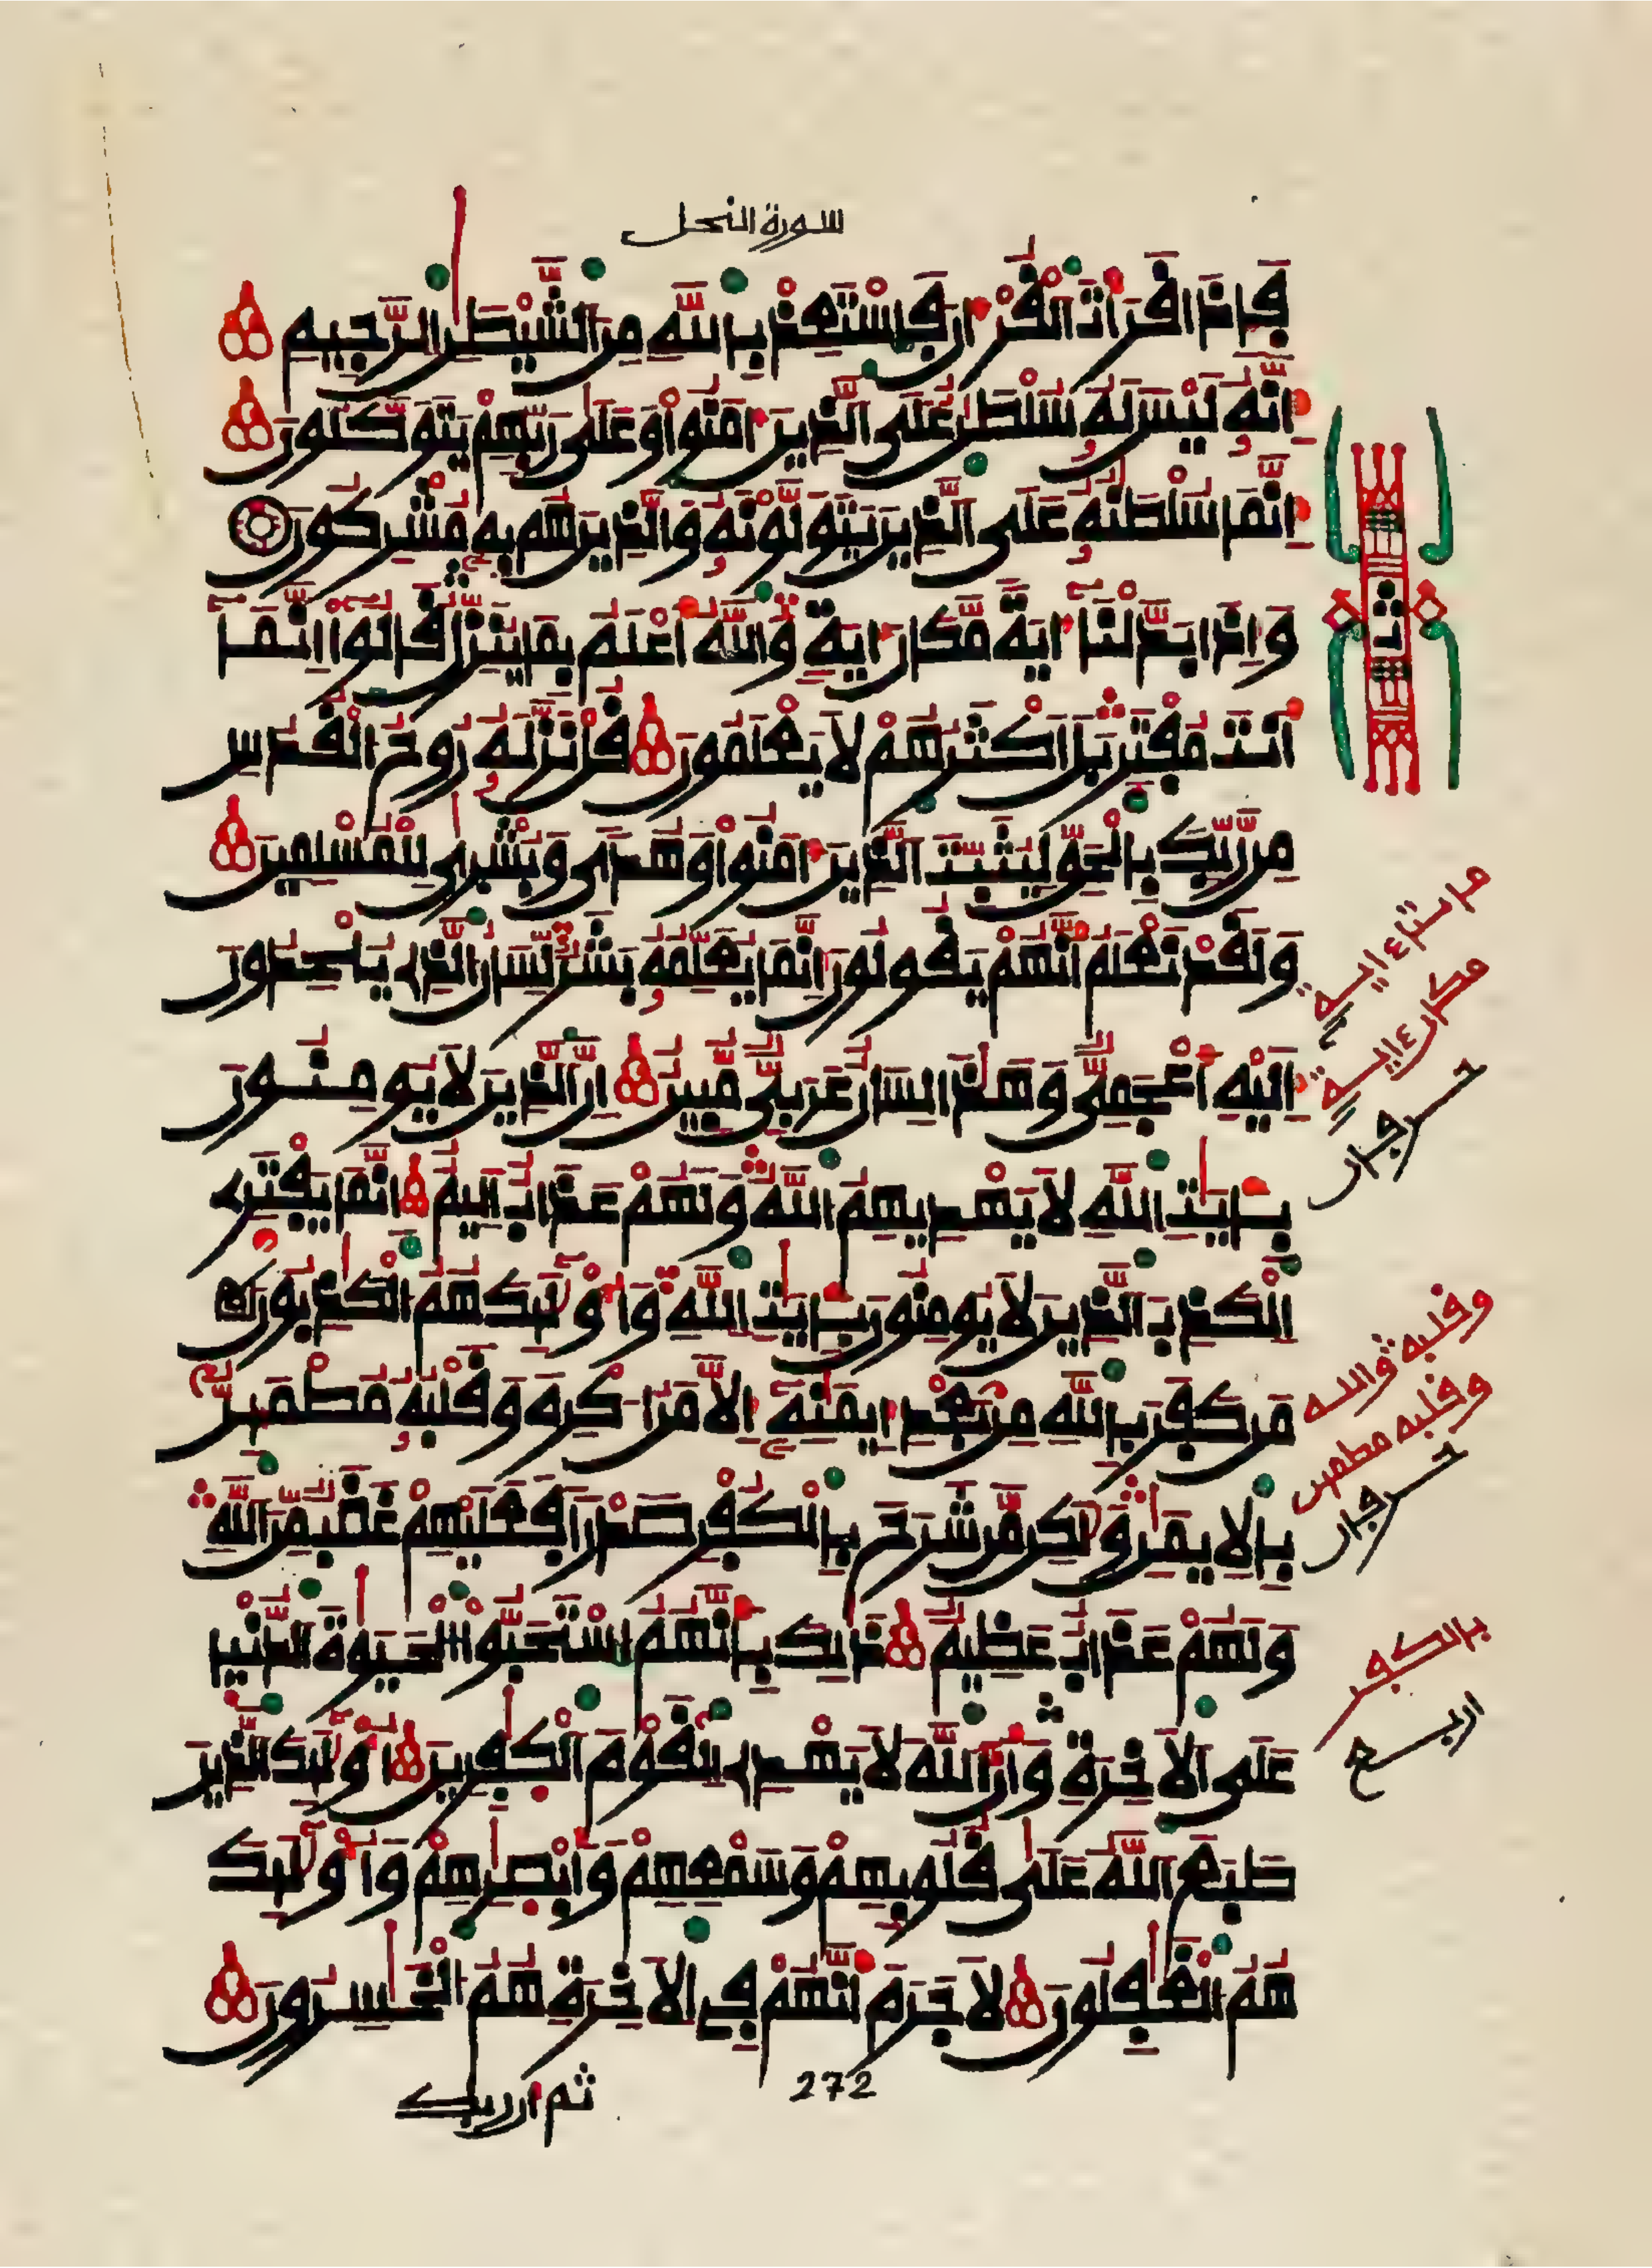 سورة النحل
فَإِذَا قَرَأْتَ الْقُرْءَانَ فَاسْتَعِذْ بِاللَّهِ مِنَ الشَّيْطَٰنِ الرَّجِيمِ
إِنَّهُ لَيْسَ لَهُ سُلْطَٰنٌ عَلَى الَّذِينَ ءَامَنُوا وَعَلَىٰ رَبِّهِمْ يَتَوَكَّلُونَ
إِنَّمَا سُلْطَٰنُهُ عَلَى الَّذِينَ يَتَوَلَّوْنَهُ وَالَّذِينَ هُم بِهِ مُشْرِكُونَ
وَإِذَا بَدَّلْنَا ءَايَةً مَّكَانَ ءَايَةٍ وَاللَّهُ أَعْلَمُ بِمَا يُنَزِّلُ قَالُوا إِنَّمَا
أَنتَ مُفْتَرٍ بَلْ أَكْثَرُهُمْ لَا يَعْلَمُونَ قُلْ نَزَّلَهُ رُوحُ الْقُدُسِ
مِن رَّبِّكَ بِالْحَقِّ لِيُثَبِّتَ الَّذِينَ ءَامَنُوا وَهُدًى وَبُشْرَىٰ لِلْمُسْلِمِينَ
وَلَقَدْ نَعْلَمُ أَنَّهُمْ يَقُولُونَ إِنَّمَا يُعَلِّمُهُ بَشَرٌ لِّسَانُ الَّذِي يُلْحِدُونَ
إِلَيْهِ أَعْجَمِيٌّ وَهَٰذَا لِسَانٌ عَرَبِيٌّ مُّبِينٌ إِنَّ الَّذِينَ لَا يُومِنُونَ
بِـَٔايَٰتِ اللَّهِ لَا يَهْدِيهِمُ اللَّهُ وَلَهُمْ عَذَابٌ أَلِيمٌ إِنَّمَا يَفْتَرِي
الْكَذِبَ الَّذِينَ لَا يُومِنُونَ بِـَٔايَٰتِ اللَّهِ وَأُولَٰئِكَ هُمُ الْكَٰذِبُونَ
مَن كَفَرَ بِاللَّهِ مِن بَعْدِ إِيمَٰنِهِ إِلَّا مَنُ اكْرِهَ وَقَلْبُهُ مُطْمَئِنٌّ
بِالْإِيمَٰنِ وَلَٰكِن مَّن شَرَحَ بِالْكُفْرِ صَدْرًا فَعَلَيْهِمْ غَضَبٌ مِّنَ اللَّهِ
وَلَهُمْ عَذَابٌ عَظِيمٌ ذَٰلِكَ بِأَنَّهُمُ اسْتَحَبُّوا الْحَيَوٰةَ الدُّنْيَا
عَلَى الْأَخِرَةِ وَأَنَّ اللَّهَ لَا يَهْدِي الْقَوْمَ الْكَٰفِرِينَ أُولَٰئِكَ الَّذِينَ
طَبَعَ اللَّهُ عَلَىٰ قُلُوبِهِمْ وَسَمْعِهِمْ وَأَبْصَٰرِهِمْ وَأُولَٰئِكَ
هُمُ الْغَٰفِلُونَ لَا جَرَمَ أَنَّهُمْ فِي الْأَخِرَةِ هُمُ الْخَٰسِرُونَ
ثمن
مكان ءاية
وقلبه والله
وقلبه مطمئن
بالكفر
اربع
272
ثم ان ربك